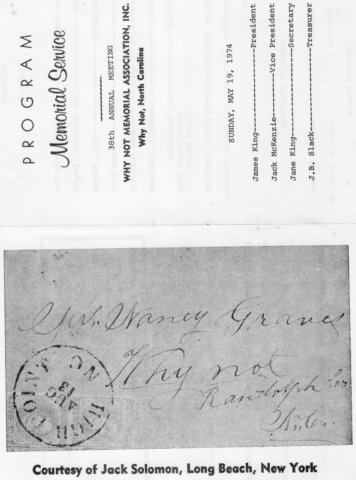 PROGRAM
Memorial Service
38th ANNUAL MEETING
WHY NOT MEMORIAL ASSOCIATION, INC.
Why Not, North Carolina
SUNDAY, MAY 19, 1974
James King------------President
Jack McKenzie------Vice President
Jane King-------------Secretary
J.B. Slack------------Treasurer
Mrs. Nancy Graves
Why not
Randolph Co
N.C.
HIGH POINT N.C.
AUG
13
Courtesy of Jack Solomon, Long Beach, New York